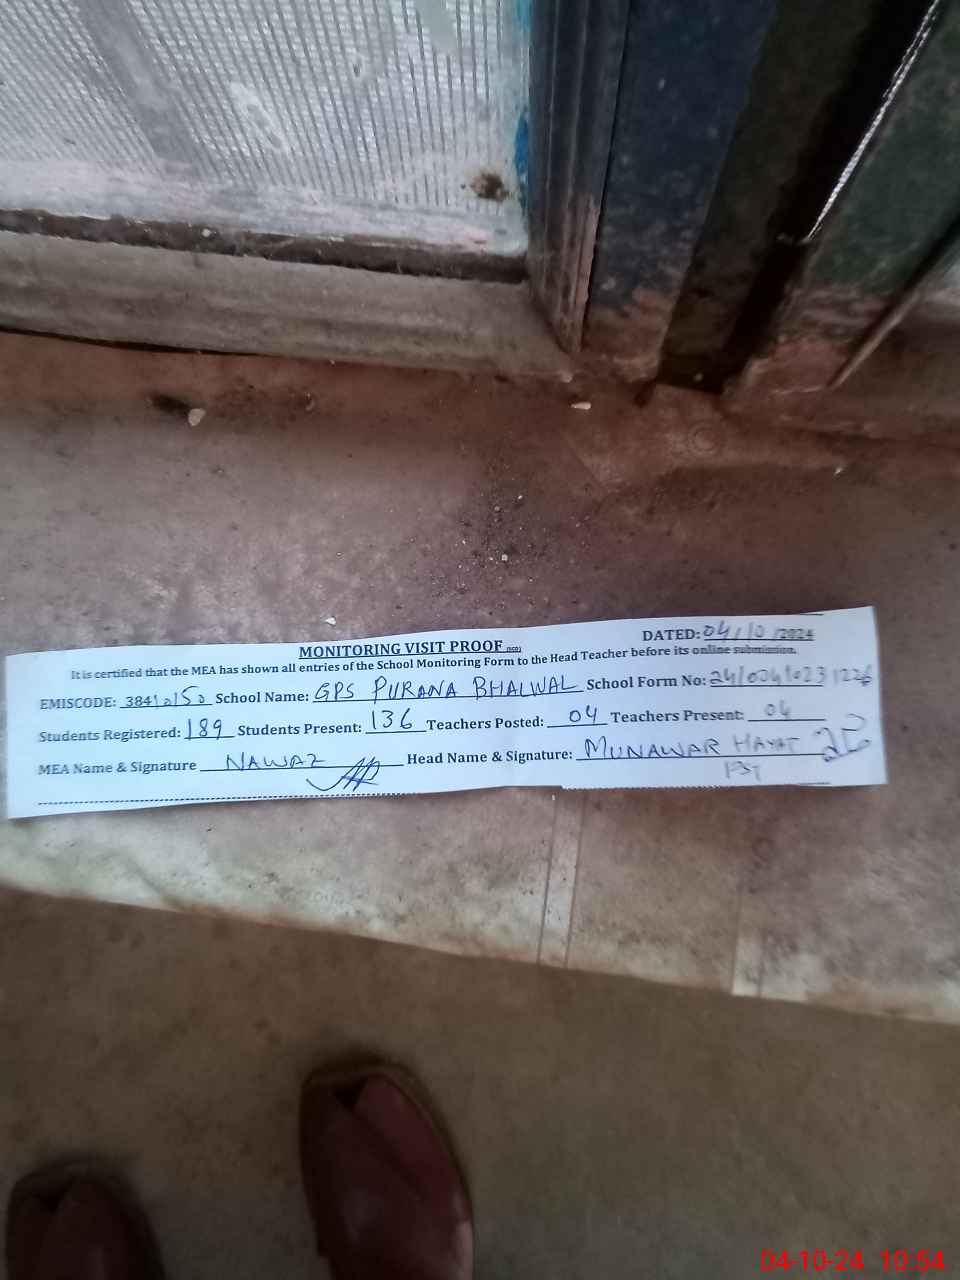 MONITORING VISIT PROOF
DATED: 04/10/2024
It is certified that the MEA has shown all entries of the School Monitoring Form to the Head Teacher before its online submission.
EMISCODE: 38410150 School Name: GPS PURANA BHALWAL School Form No:
Students Registered: 189 Students Present: 136 Teachers Posted: 04 Teachers Present: 04
MEA Name & Signature NAWAZ Head Name & Signature: MUNAWAR HAYAT
PST
04-10-24 10:54